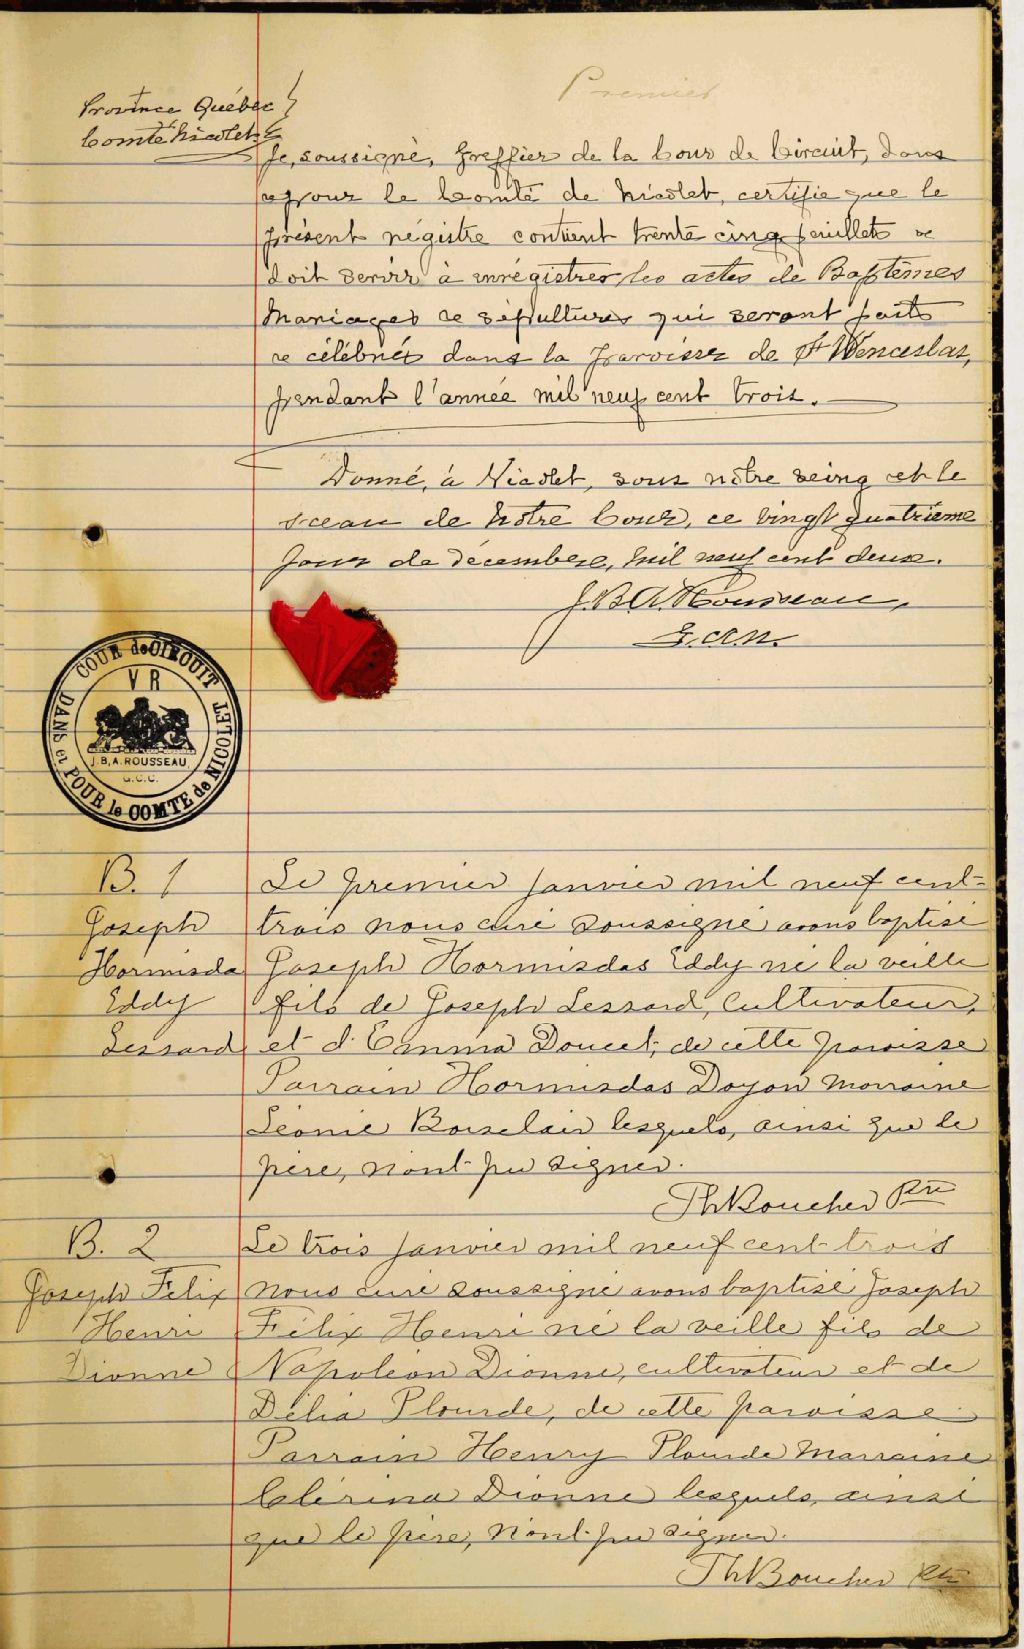 Premier
Province Québec
Comté Nicolet
Je, soussigné, Greffier de la Cour de Circuit, dans
et pour le Comté de Nicolet, certifie que le
présent régistre contient trente cinq feuillets et
doit servir à enrégistrer les actes de Baptêmes
Mariages et sépultures qui seront faits
et célébrés dans la paroisse de St Wenceslas,
pendant l'année mil neuf cent trois.
Donné, à Nicolet, sous nôtre seing et le
sceau de nôtre Cour, ce vingt quatrième
jour de décembre, mil neuf cent deux.
J.B.A. Rousseau,
COUR de CIRCUIT
DANS et POUR le COMTE de NICOLET
V R
J.B.A. ROUSSEAU.
G.C.C.
B. 1
Joseph
Hormisda
Eddy
Lessard
Le premier janvier mil neuf cent-
trois nous curé soussigné avons baptisé
Joseph Hormisdas Eddy né la veille
fils de Joseph Lessard, cultivateur,
et d'Emma Doucet, de cette paroisse
Parrain Hormisdas Doyon Marraine
Léonie Boisclair lesquels, ainsi que le
père, n'ont pu signer.
Th Boucher Ptre
B. 2
Joseph Félix
Henri
Dionne
Le trois janvier mil neuf cent-trois
nous curé soussigné avons baptisé Joseph
Félix Henri né la veille fils de
Napoléon Dionne, cultivateur et de
Délia Plourde, de cette paroisse
Parrain Henry Plourde Marraine
Clérina Dionne lesquels, ainsi
que le père, n'ont pu signer.
Th Boucher Ptre